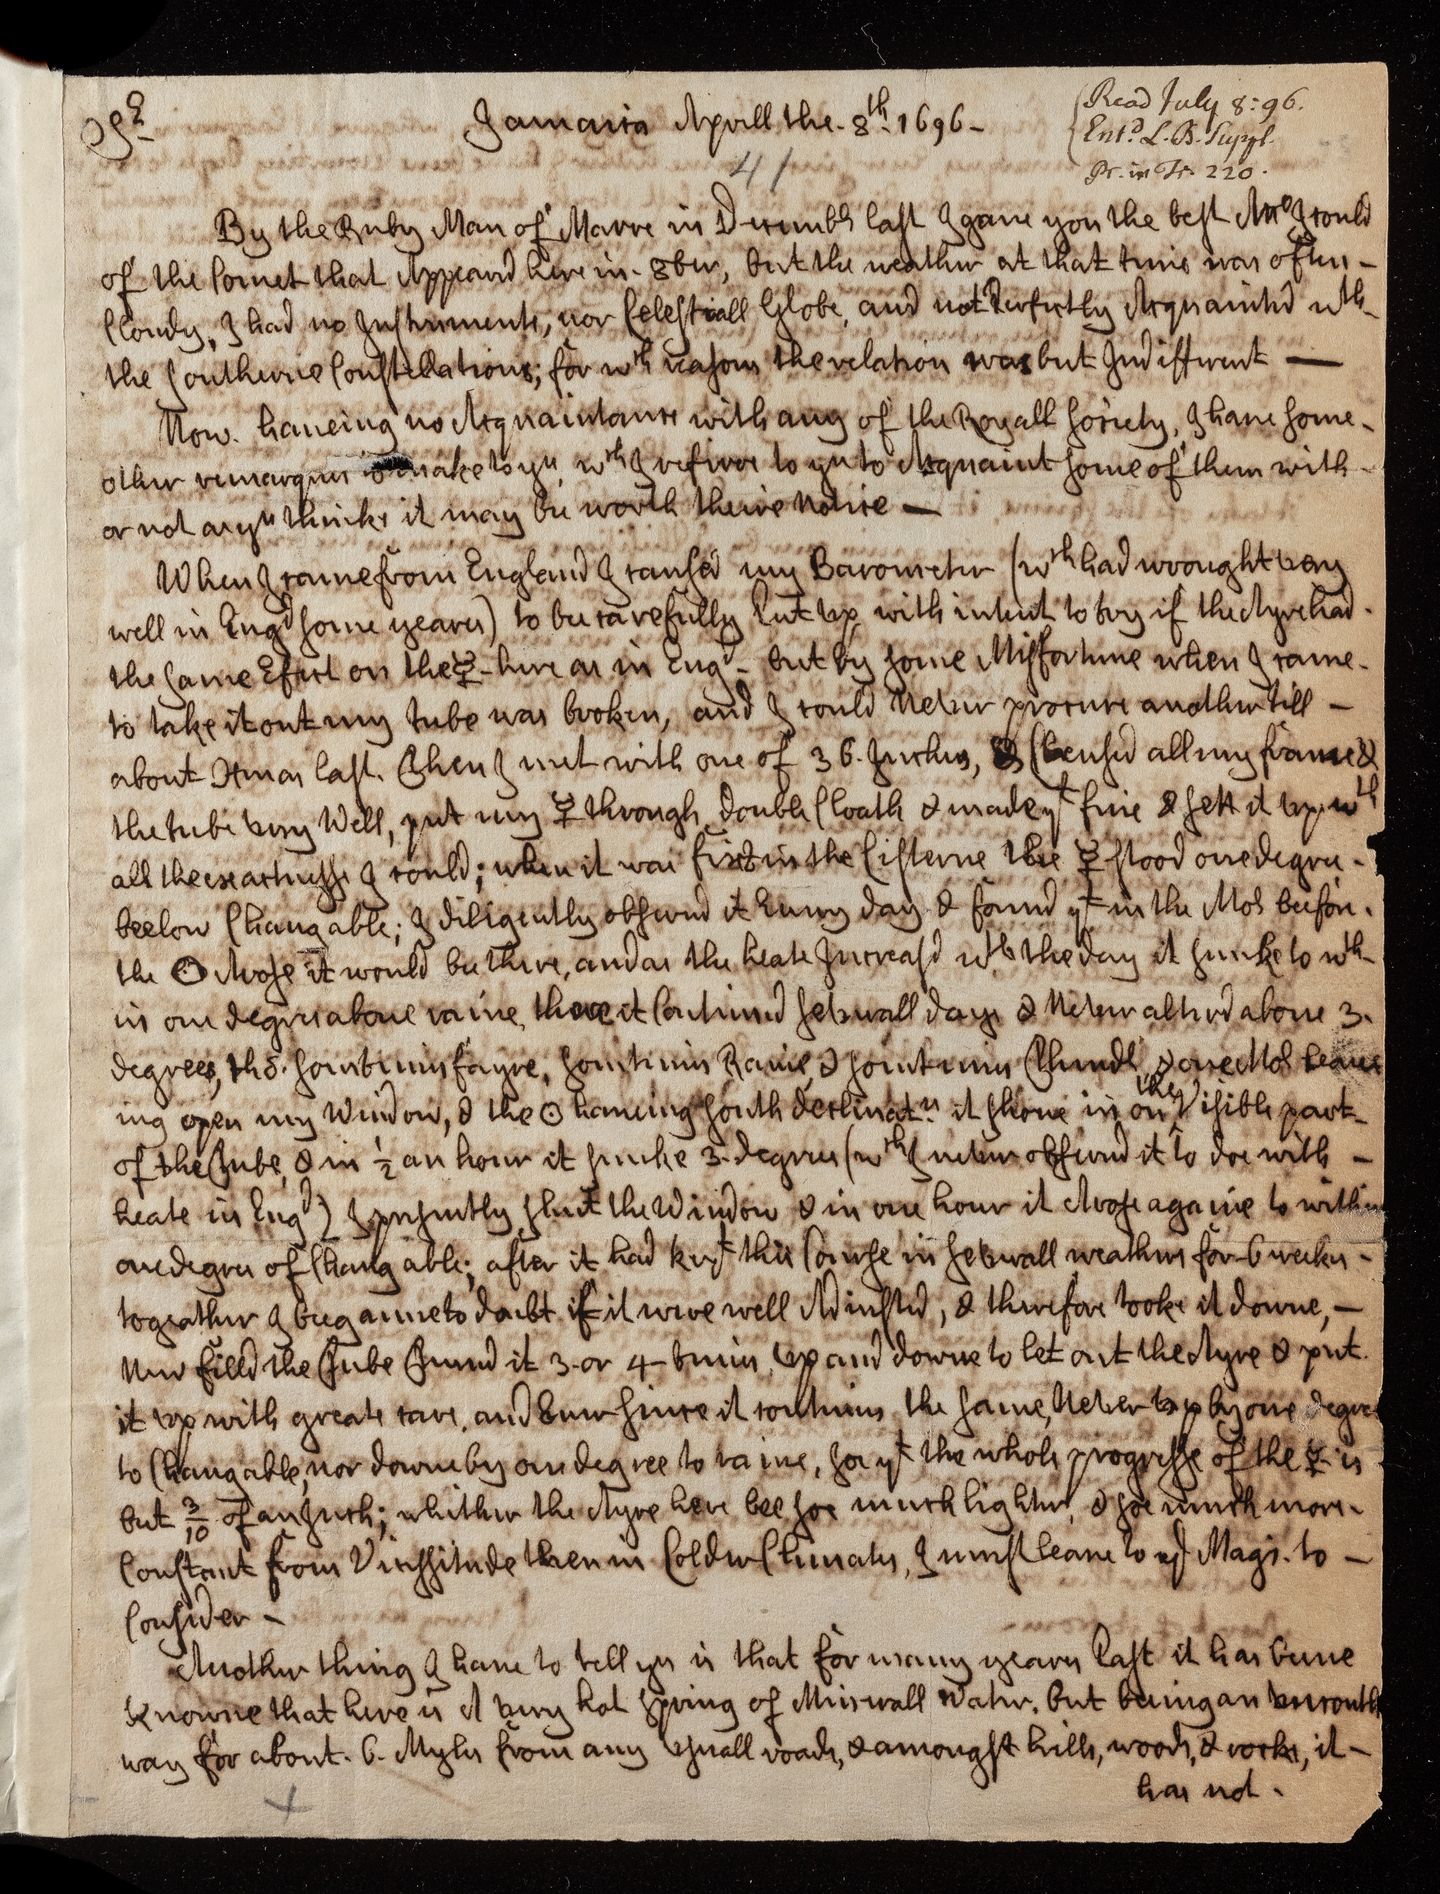 Jamaica Aprill the. 8th. 1696-
Read July 8: 96.
Entd. L. B. Suppl.
Pr. in Tr. 220.
41
By the Ruby Man of Warre in Decembr last I gave you the best Acco I could
of the Comet that Appeard here in. 8ber, but the weather at that time was often -
Cloudy, I had no Instruments, nor Celestiall Globe, and not Perfectly Acquainted wth-
the Southerne Constellations; for wch reasons the relation was but Indifferent —
Now. haveing no Acquaintance with any of the Royall Society, I have some-
other remarques to make to yu, wch I referre to yu to Acquaint some of them with -
or not as yu thinke it may be worth theire Notice —
When I came from England I caused my Barometer (wch had wrought very
well in Engd some yeares) to be carefully Put up, with intent to try if the Ayre had.
the same Efect on the ☿ - here as in Engd - but by some Misfortune when I came-
to take it out my tube was broken, and I could Never procure another till -
about Xmas last. Then I met with one of 36. Inches, & Clensed all my frame &
the tube very Well, put my ☿ through double Cloath & made yt fine & sett it up wth
all the exactnesse I could; when it was fixt in the Cisterne the ☿ stood one degree -
beelow Changable; I diligently observed it Every day & found yt in the Mor̄ before.
the ☉ Arose it would be there, and as the heate Increasd wth the day it sunke to wth-
in one degree above raine, there it Continued severall days & Never altered above 3.
degrees, thō. sometimes fayre, sometimes Raine, & sometimes Thundr, & one Mor̄ leave
ing open my Window, & the ☉ haveing South declinatn. it shone in on the Visible part-
of the Tube, & in 1/2 an hour it sunke 3. degrees (wch I never observed it to doe with -
heate in Engd) I presently shut the Window & in one hour it Arose againe to within
one degree of Changable; after it had kept this Course in severall weathers for 6 weekes -
togeather I beganne to doubt if it were well Adiusted, & therefore tooke it downe, —
New filld the Tube Turnd it 3. or 4 - times up and downe to let out the Ayre & put.
it up with greate care, and Ever since it continues the same, Never up by one degree
to Changable, nor downe by one degree to raine, soe yt the whole progresse of the ☿ is
but 3/10 of an Inch; whither the Ayre here bee soe much lighter, & soe much more-
Constant from Vicissitude then in Colder Climates, I must leave to ye Magi. to -
Consider -
Another thing I have to tell yu is that for many yeares Past it has beene
knowne that here is A very hot spring of Minerall Water. but being an uncouth
way for about. 6. Myles from any usuall roads, & amongst hills, woods, & rocks, it -
has not.